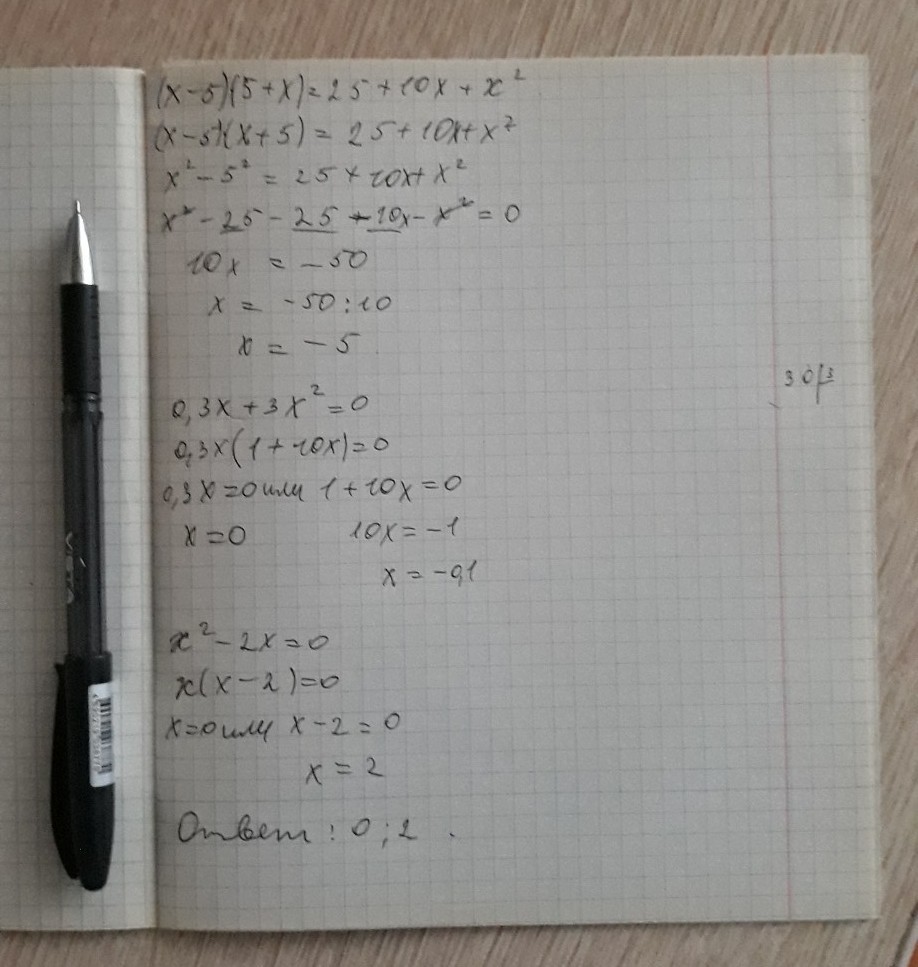 (x-5)(5+x)=25+10x+x²
(x-5)(x+5) = 25+10x+x²
x²-5² = 25+10x+x²
x²-25-25-10x-x²=0
10x = -50
x = -50:10
x = -5
0,3x+3x²=0
0,3x(1+10x)=0
0,3x=0 или 1+10x=0
x=0 10x=-1
x=-0,1
x²-2x=0
x(x-2)=0
x=0 или x-2=0
x=2
Ответ: 0;2.